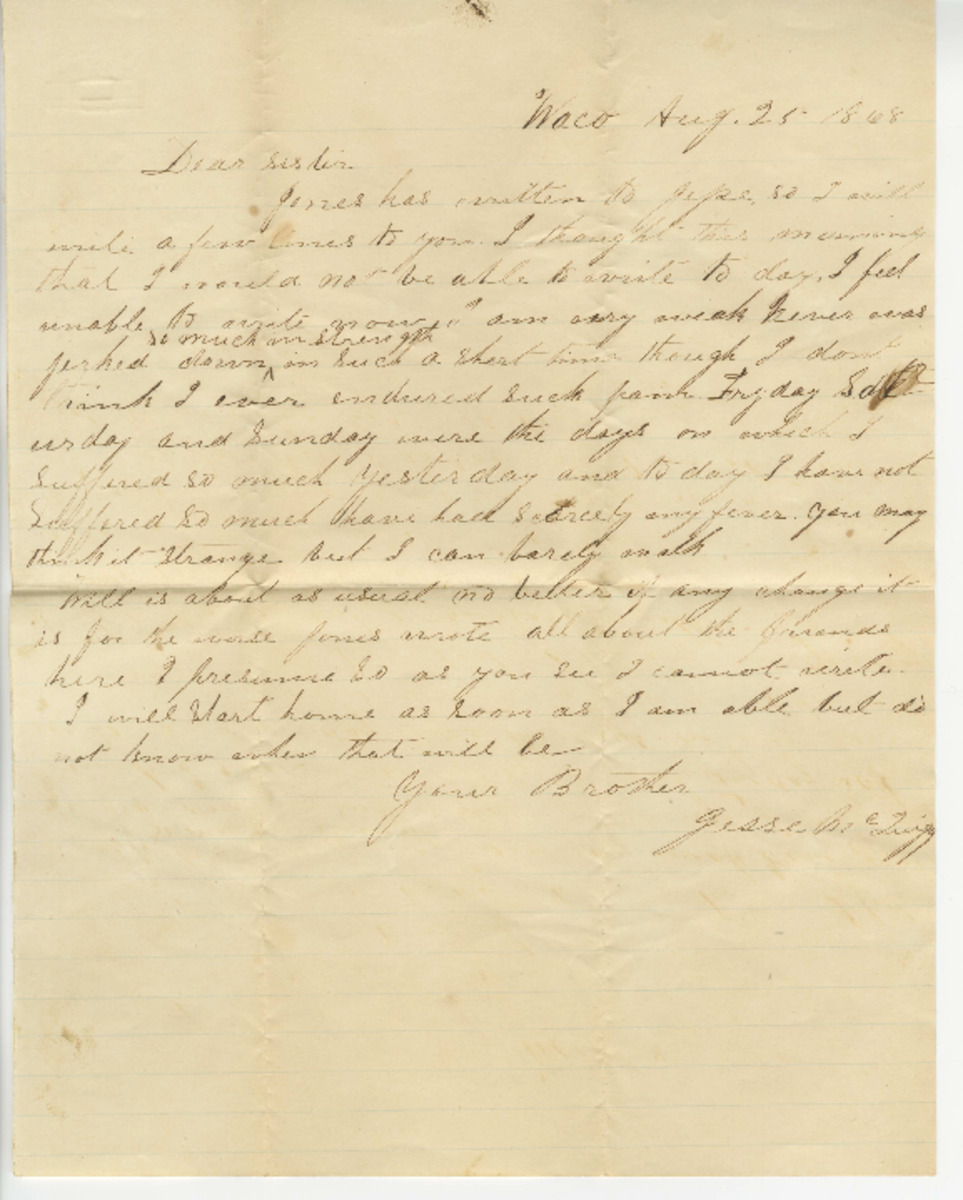 Waco Aug. 25 1868
Dear sister
Jones has written to Jesse, so I will
write a few lines to you. I thought this morning
that I would not be able to write to day, I feel
unable to write now. I am very weak I never was
so much in strength
jerked down, in such a short time though I don't
think I ever endured such pain Fryday Sat
urday and Sunday were the days on which I
suffered so much yesterday and to day I have not
suffered so much I have had scarcely any fever. you may
think it strange but I can barely walk
Will is about as usual no better if any change it
is for the worse Jones wrote all about the friends
here I presume so as you see I cannot write.
I will start home as soon as I am able but do
not know when that will be
Your Brother
Jesse Mc